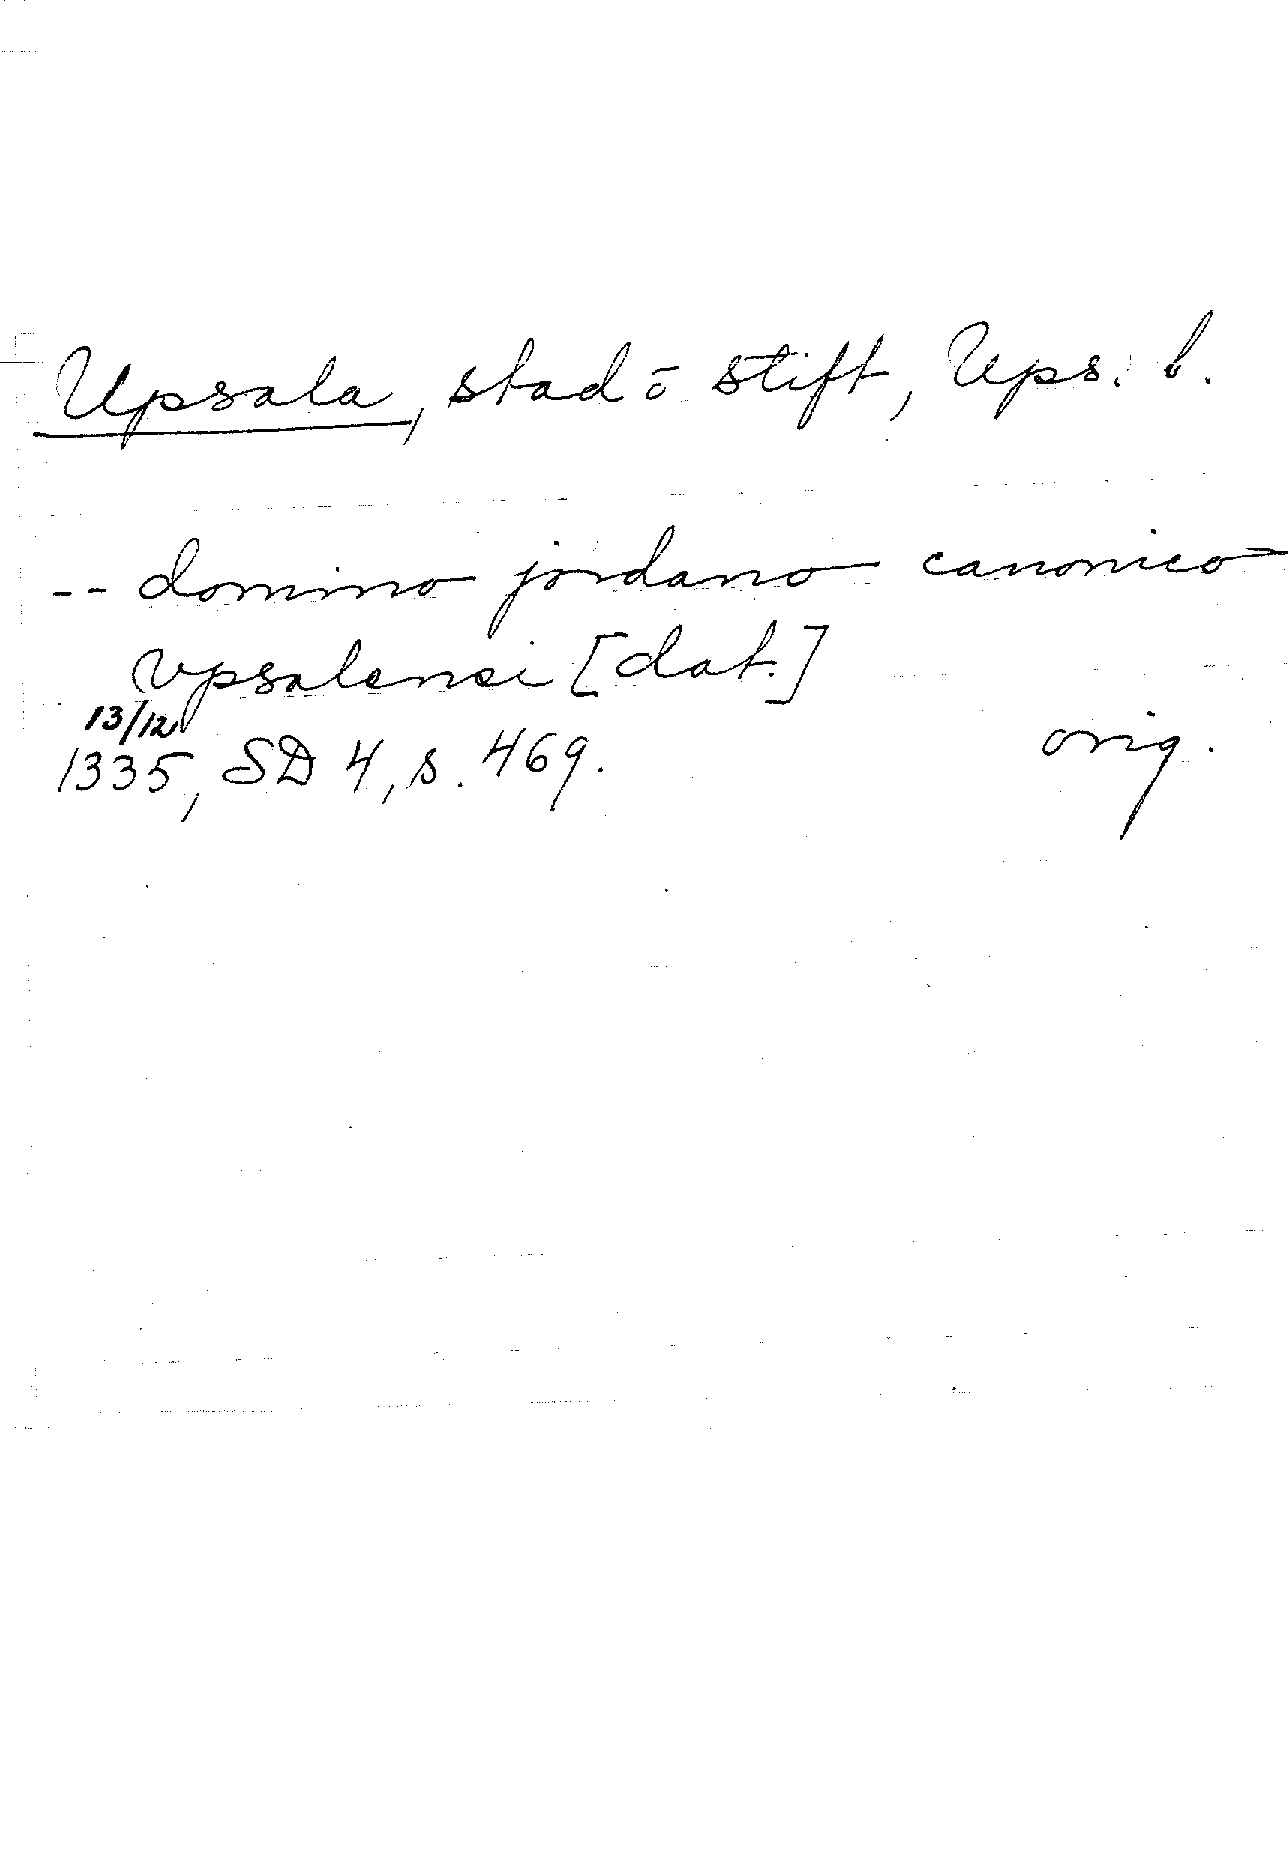 Upsala, stad o stift, Ups. l.
-- domino jordano canonico
vpsalensi [dat.]
13/12
1335, SD 4, s. 469. orig.